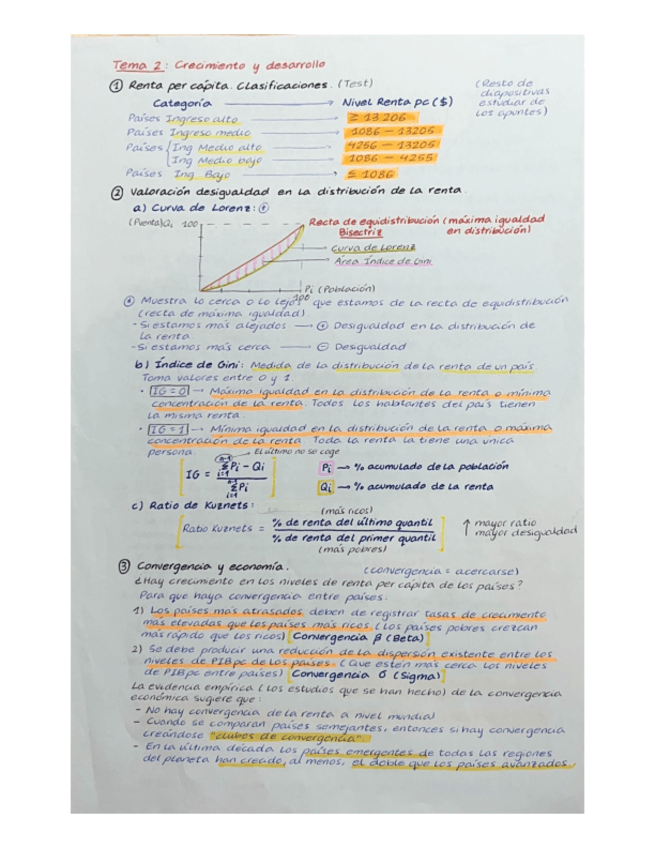 Tema 2: Crecimiento y desarrollo
① Renta per cápita. Clasificaciones. (Test)
(Resto de
diapositivas
estudiar de
los apuntes)
Categoría → Nivel Renta pc ($)
Países Ingreso alto → ≥ 13 206
Países Ingreso medio → 1086 – 13205
Países { Ing Medio alto → 4256 – 13205
Ing Medio bajo → 1086 – 4255
Países Ing. Bajo → ≤ 1086
② Valoración desigualdad en la distribución de la renta.
a) Curva de Lorenz:
(Renta) Qi 100
Recta de equidistribución (máxima igualdad
Bisectriz en distribución)
Curva de Lorenz
Área Índice de Gini
Pi (Población)
100
Muestra lo cerca o lo lejos que estamos de la recta de equidistribución
(recta de máxima igualdad)
- Si estamos más alejados → ⊕ Desigualdad en la distribución de
la renta
- Si estamos más cerca → ⊖ Desigualdad
b) Índice de Gini: Medida de la distribución de la renta de un país
Toma valores entre 0 y 1.
· IG=0 → Máxima igualdad en la distribución de la renta o mínima
concentración de la renta. Todos los habitantes del país tienen
la misma renta.
· IG=1 → Mínima igualdad en la distribución de la renta o máxima
concentración de la renta. Toda la renta la tiene una única
persona.
El último no se coge
IG = n-1 Σ i=1 Pi - Qi / n-1 Σ i=1 Pi
Pi → % acumulado de la población
Qi → % acumulado de la renta
c) Ratio de Kuznets:
(más ricos)
Ratio Kuznets = % de renta del último quantil / % de renta del primer quantil
(más pobres)
↑ mayor ratio
mayor desigualdad
③ Convergencia y economía. (convergencia = acercarse)
¿Hay crecimiento en los niveles de renta per cápita de los países?
Para que haya convergencia entre países:
1) Los países más atrasados deben de registrar tasas de crecimiento
más elevadas que los países más ricos (Los países pobres crezcan
más rápido que los ricos) [Convergencia β (Beta)]
2) Se debe producir una reducción de la dispersión existente entre los
niveles de PIBpc de los países. (Que estén más cerca los niveles
de PIBpc entre países) [Convergencia σ (Sigma)]
La evidencia empírica (los estudios que se han hecho) de la convergencia
económica sugiere que:
- No hay convergencia de la renta a nivel mundial
- Cuando se comparan países semejantes, entonces si hay convergencia
creándose "clubes de convergencia"
- En la última década los países emergentes de todas las regiones
del planeta han crecido, al menos, el doble que los países avanzados.